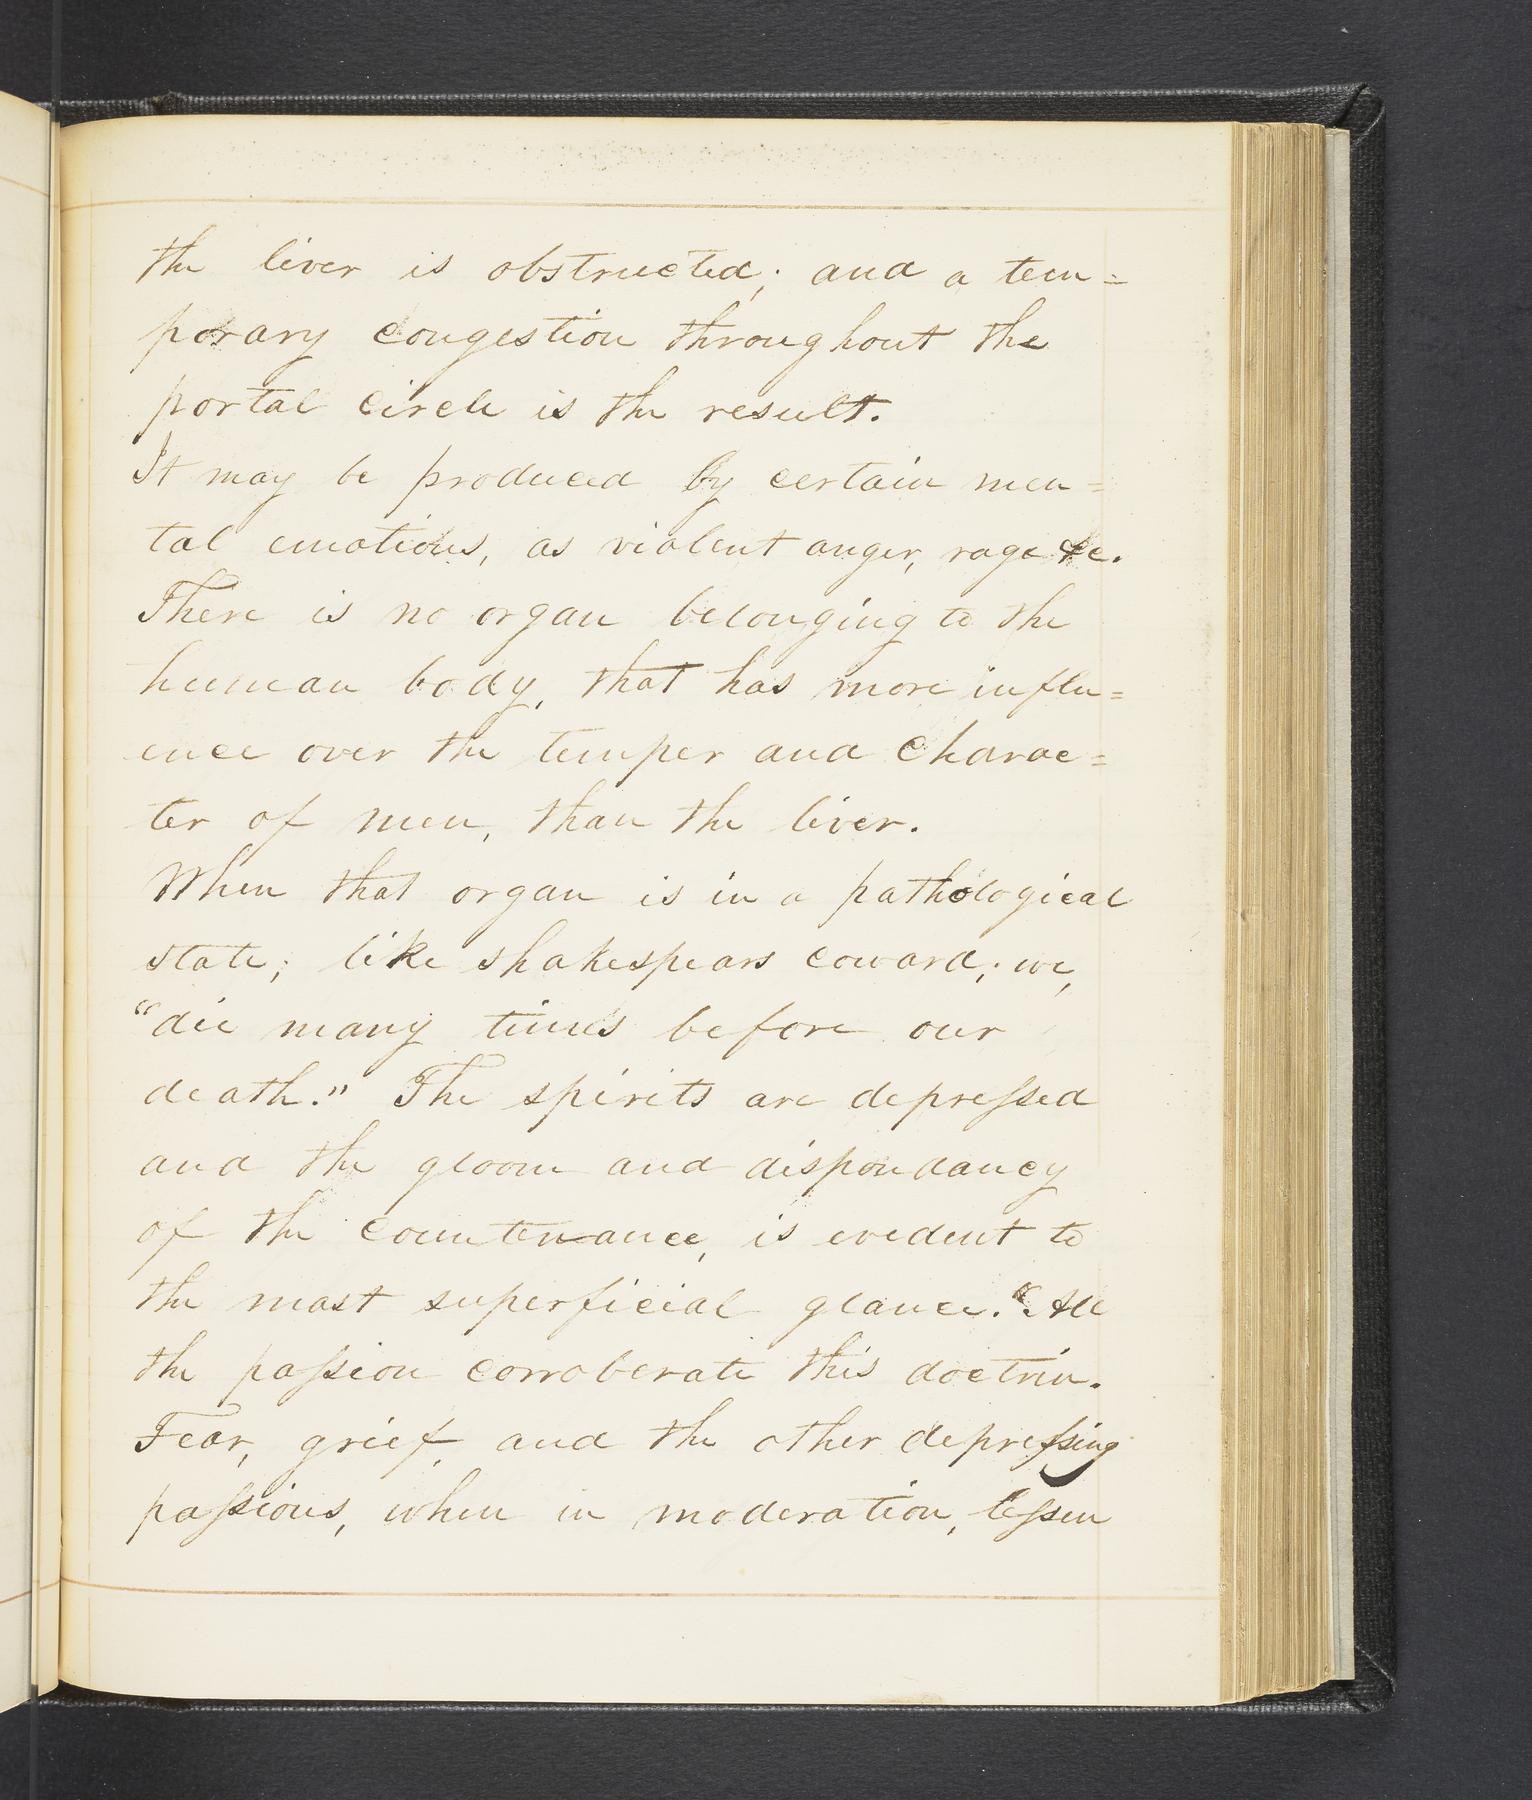 the liver is obstructed; and a tem=
porary congestion throughout the
portal circle is the result.
It may be produced by certain men=
tal emotions, as violent anger, rage &c.
There is no organ belonging to the
human body, that has more influ=
ence over the temper and charac=
ter of men, than the liver.
When that organ is in a pathological
state; like shakespears coward; we,
"die many times before our
death." The spirits are depressed
and the gloom and dispondancy
of the countenance, is evedent to
the most superficial glance. "All
the passion corroberate this doctrin.
Fear, grief, and the other depressing
passions, when in moderation, lessen